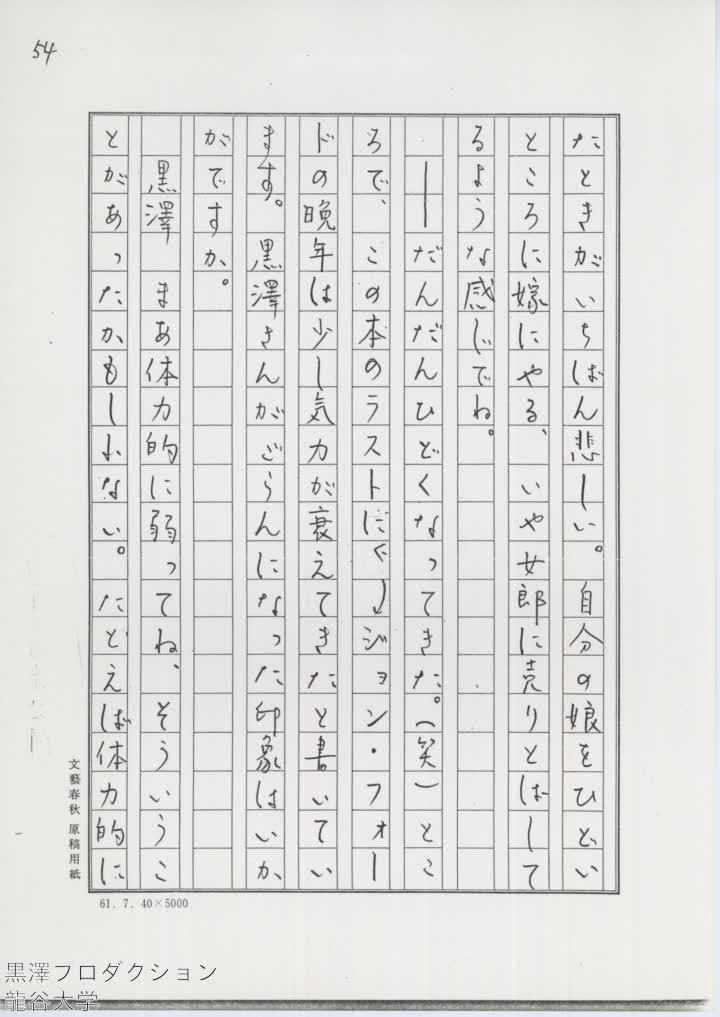 54
たときがいちばん悲しい。自分の娘をひどい
ところに嫁にやる、いや女郎に売りとばして
るような感じでね。
――だんだんひどくなってきた。(笑)とこ
ろで、この本のラストに、ジョン・フォー
ドの晩年は少し気力が衰えてきたと書いてい
ます。黒澤さんがごらんになった印象はいか
がですか。
黒澤　まあ体力的に弱ってね、そういうこ
とがあったかもしれない。たとえば体力的に
文藝春秋 原稿用紙
61. 7. 40×5000
黒澤プロダクション
龍谷大学